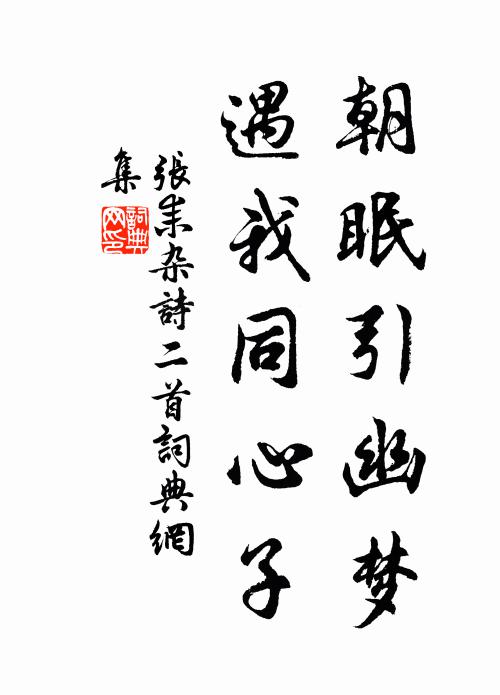 朝眠引幽梦
遇我同心子
張耒杂詩二首詞典網
集
詞典
网印